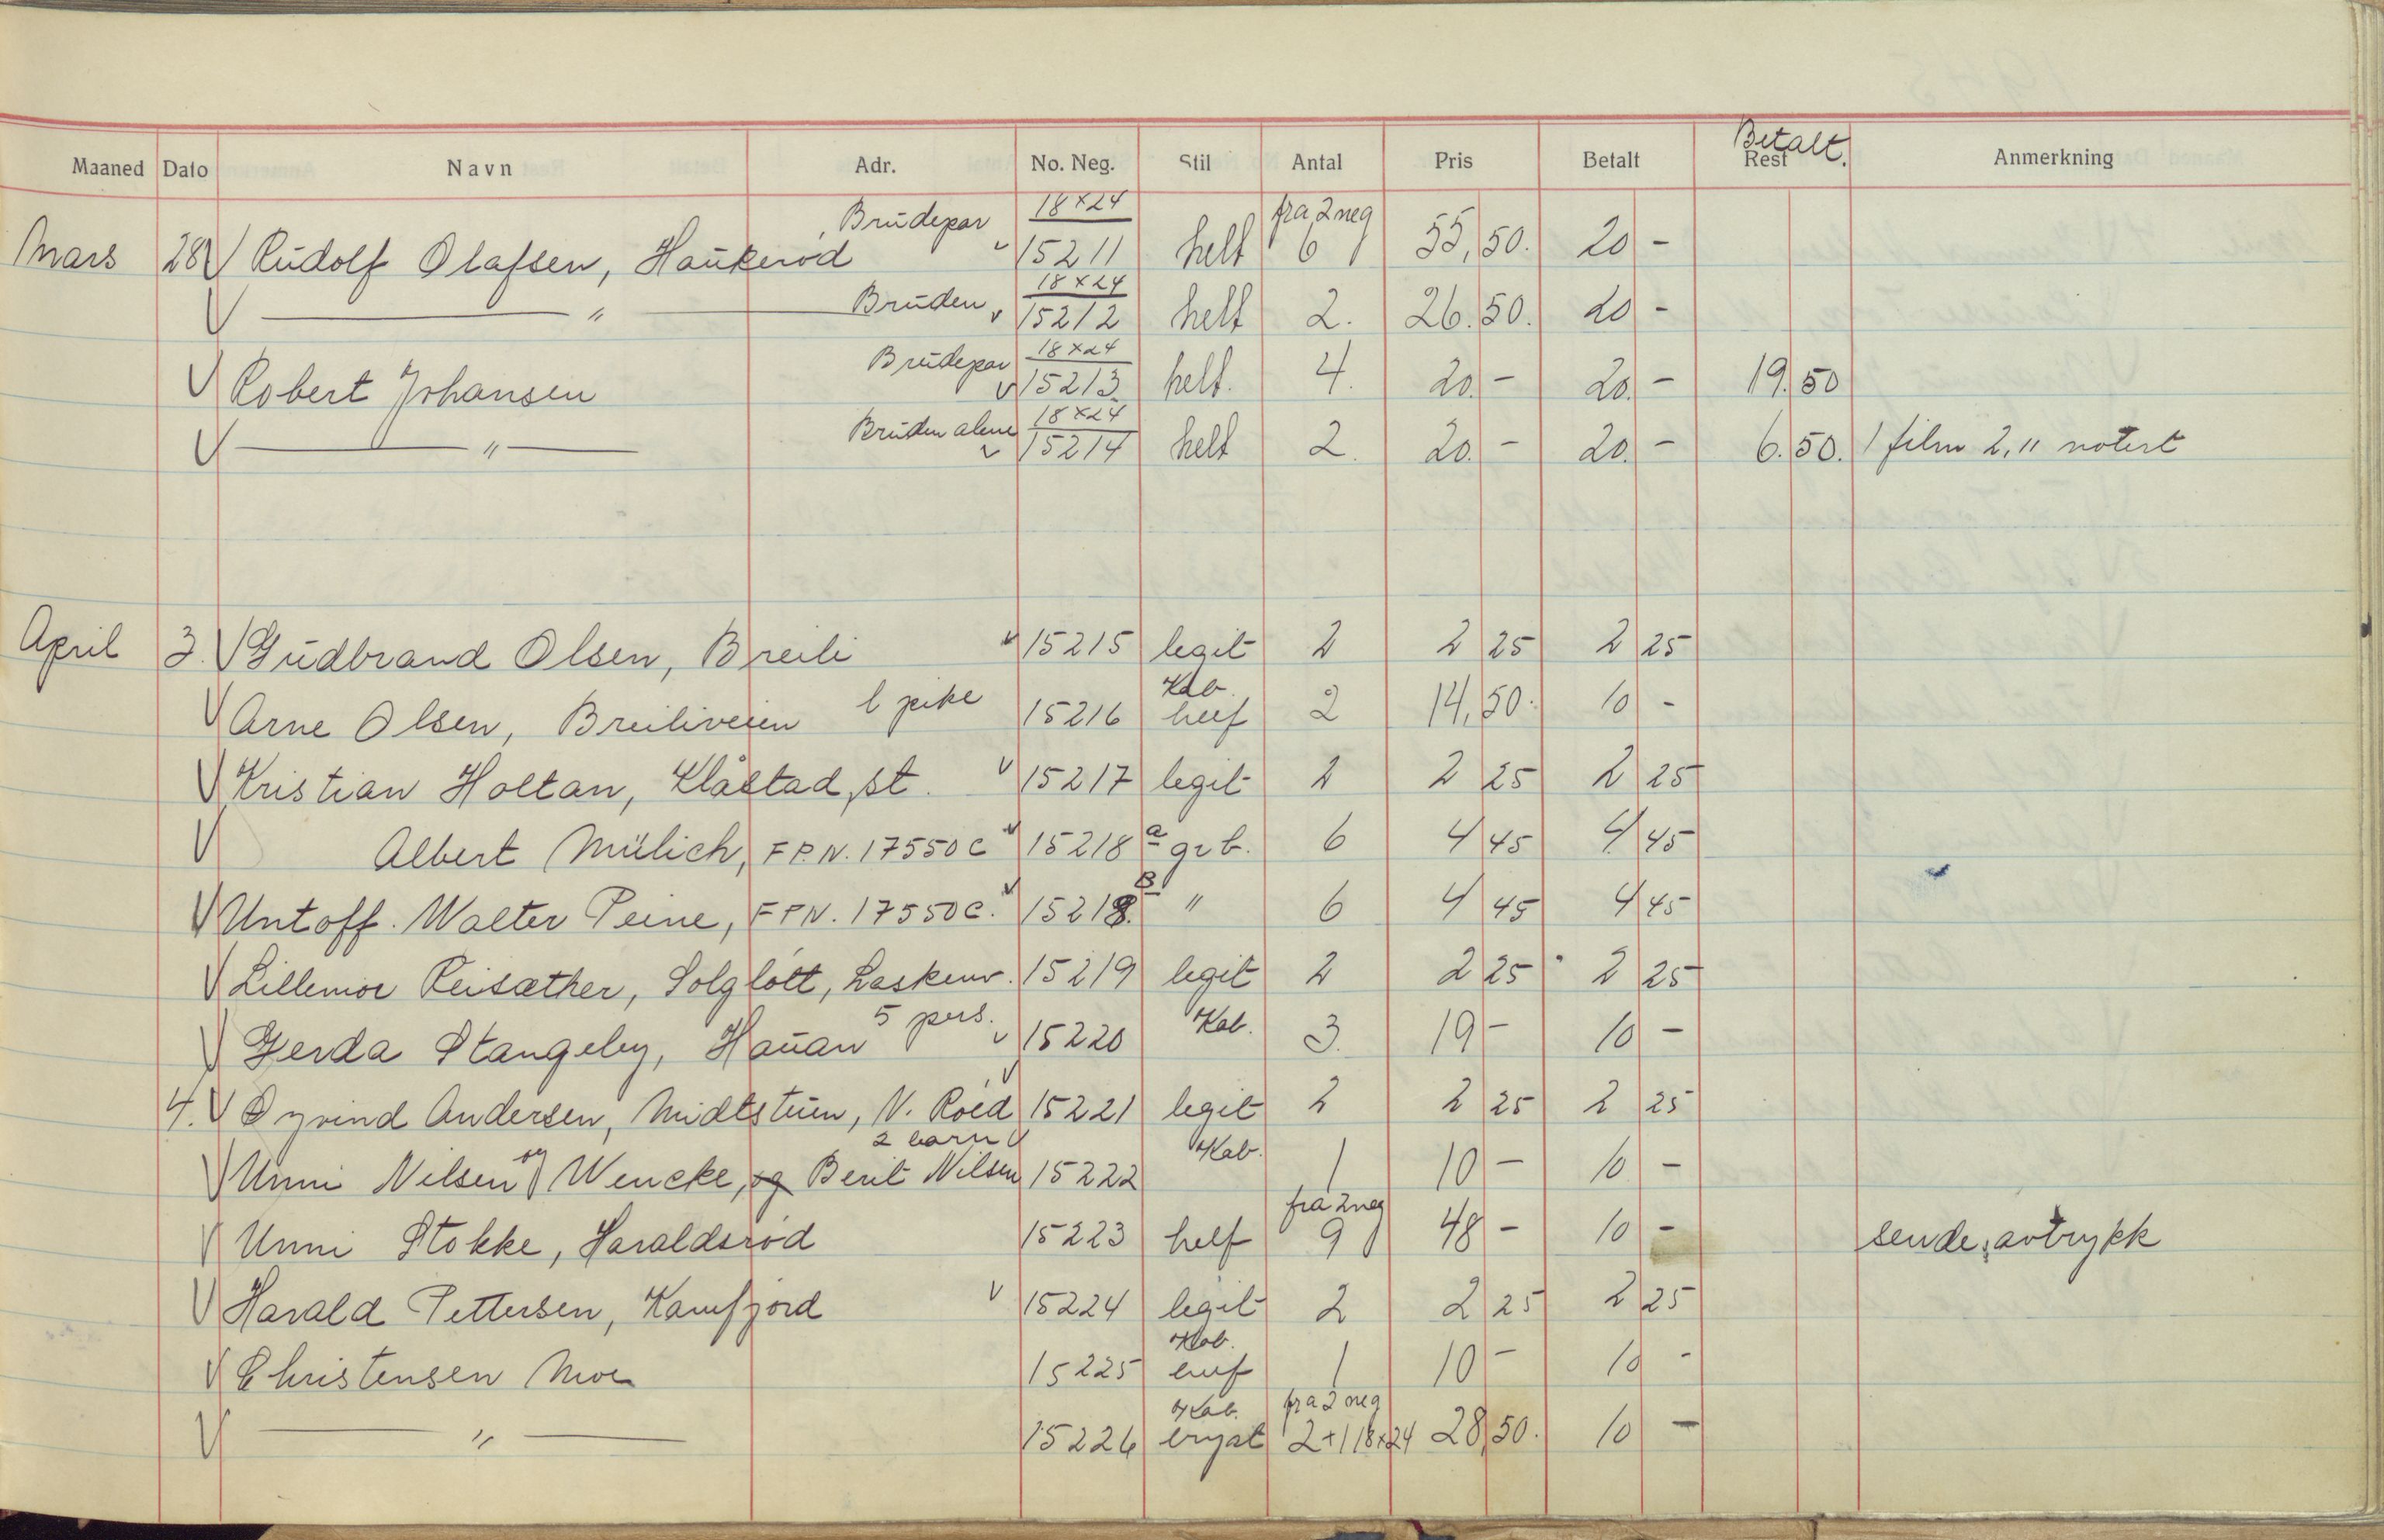 Betalt.
Maaned Dato Navn Adr. No. Neg. Stil Antal Pris Betalt Rest Anmerkning
Brudepar 18x24 fra 2 neg
Mars 28 V Rudolf Olafsen, Haukerød 15211 helf 6 55,50. 20 -
18x24
V — " — Bruden 15212 helf 2. 26.50. 20 -
Brudepar 18x24
V Robert Johansen 15213 helf. 4. 20. - 20. - 19.50
18x24
V — " — Bruden alene 15214 helf 2. 20. - 20. - 6.50. 1 film 2," notert
April 3. V Gudbrand Olsen, Breili 15215 legit 2 2 25 2 25
Kab.
V Arne Olsen, Breiliveien 1 pike 15216 helf 2 14,50. 10 -
V Kristian Holtan, Klåstad st. 15217 legit 2 2 25 2 25
V Albert Mülich, F.P.N. 17550 C 15218 a gr b. 6 4 45 4 45
V Untoff. Walter Peine, F.P.N. 17550 C. 15218. B " 6 4 45 4 45
V Lillemor Reisæther, Solgløtt, Laskenv. 15219 legit 2 2 25 2 25
V Gerda Stangeby, Hauan 5 pers. 15220 Kab. 3. 19 - 10 -
4. V Øyvind Andersen, Midtstuen, N. Roed 15221 legit 2 2 25 2 25
2 barn
V Unni Nilsen og Wencke, og Berit Nilsen 15222 Kab. 1 10 - 10 -
fra 2 neg
V Unni Stokke, Haraldsrød 15223 helf 9 48 - 10 - sende avtrykk
V Harald Pettersen, Kamfjord 15224 legit 2 2 25 2 25
Kab.
V Christensen Moe 15225 1 10 - 10 -
Kab. fra 2 neg
V — " — 15226 bryst 2+1 18x24 28,50. 10 -